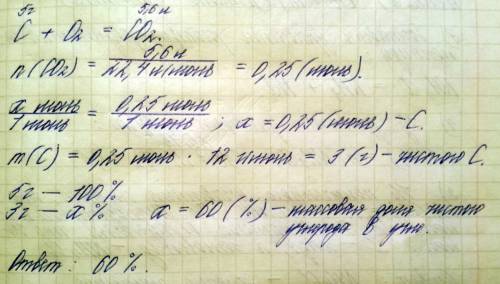 5г 5,6л
C + O₂ = CO₂.
n(CO₂) = 5,6л / 22,4 л/моль = 0,25 (моль).
x моль / 1 моль = 0,25 моль / 1 моль ; x = 0,25 (моль) – C.
m(C) = 0,25 моль · 12 г/моль = 3 (г) – чистого C.
5г — 100%
3г — x% x = 60 (%) – массовая доля чистого
углерода в угле.
Ответ: 60%.